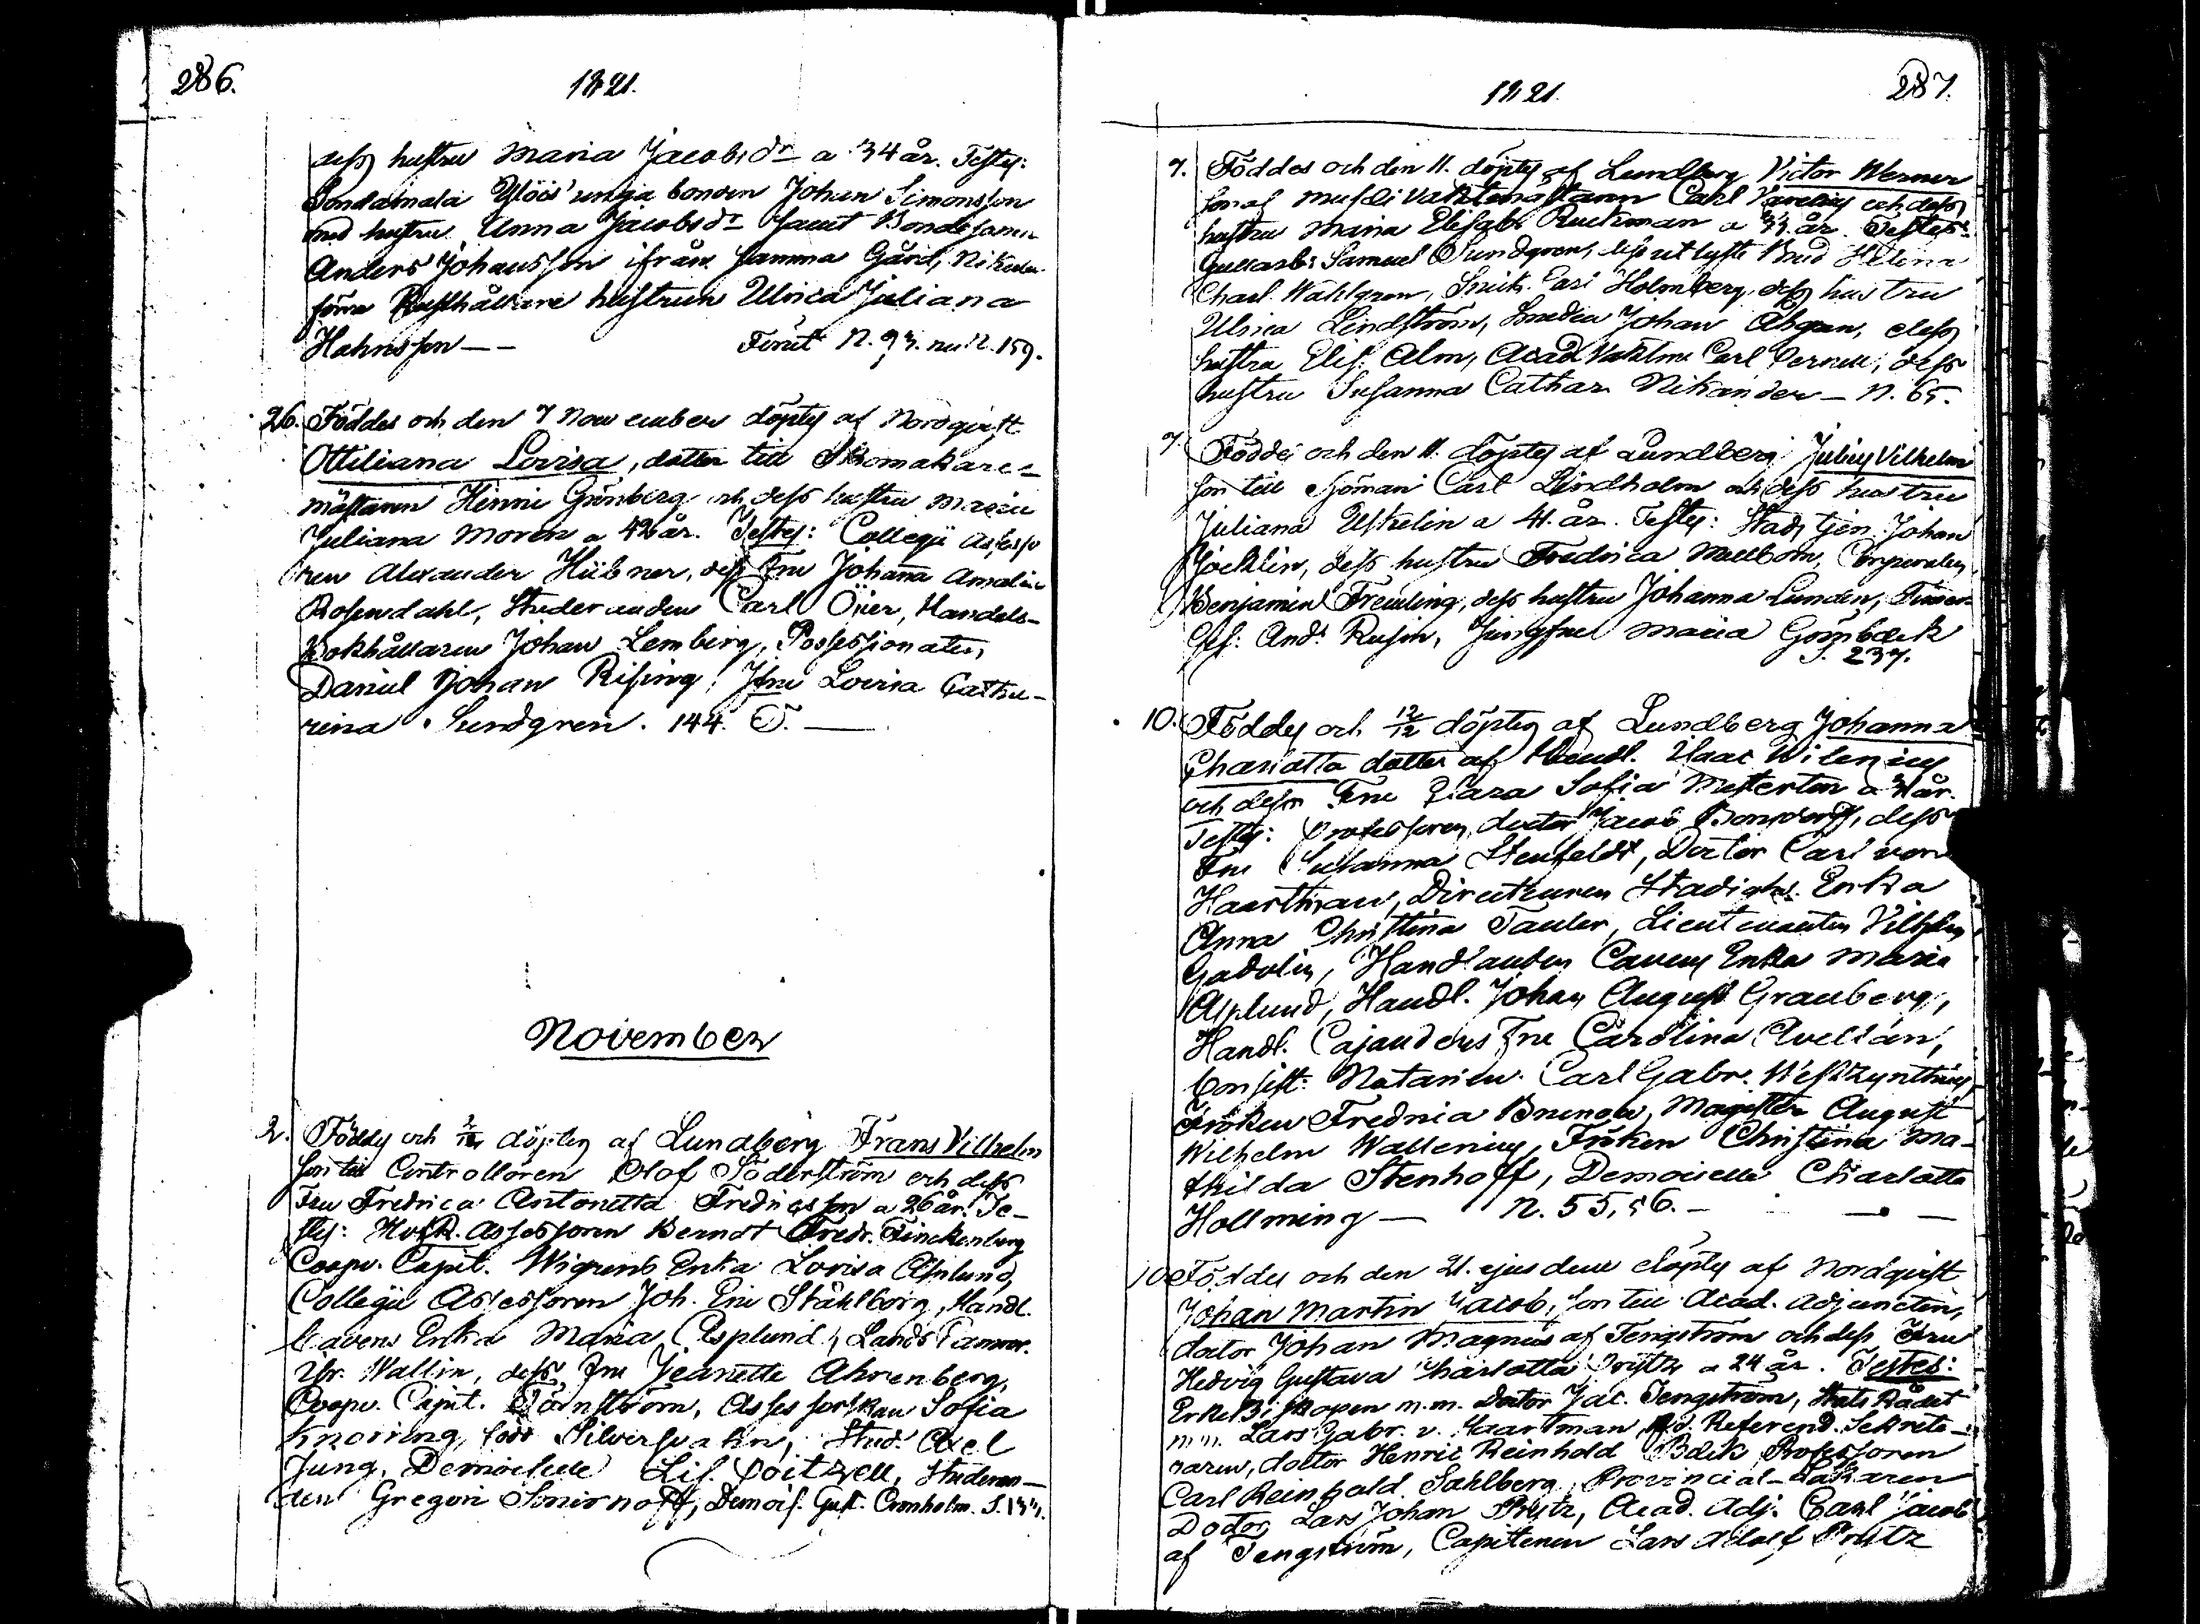 286.
1821.
dess hustru Maria Jacobsdr a 34 år. Testes:
unga bonden Johan Simonsson
med hustru Anna Jacobsdr samt
Anders Johansson ifrån samma Gård,
Rusthållare hustrun Ulrica Juliana
Hahnsson — — Förut N. 93. nu N. 159.
26. Föddes och den 7 November döptes af Nordqvist
Ottiliana Lovisa, dotter till Skomakare-
mästaren Henric Grönberg och dess hustru Maria
Juliana Moren a 42 år. Testes: Collegii Assesso
ren Alexander Hübner, dess Fru Johanna Amalia
Rosendahl, Studeranden Carl Öijer, Handels-
Bokhållaren Johan Lemberg, Possessionaten
Daniel Johan Rising, Jfru Lovisa Catha-
rina Sundgren. 144. T. —
November
2. Föddes och döptes af Lundberg Frans Vilhelm
son till Controlloren Olof Söderström och dess
Fru Fredrica Antonetta Fredricsson a 26 år. Te-
stes: HofR. Assessoren Berndt Fredr. Finckenberg
Coopv. Capit. Wigrens Enka Lovisa Asplund,
Collegii Assessoren Joh. Eric Ståhlborg, Handl.
Cavens Enka Maria Asplund,
Wallin, dess Fru Jeanette Ahrenberg,
Coopv. Capit. Törnström, Assessorskan Sofia
Knorring, född Silfversvahn, Stud. Axel
Jung, Demoiselle Lis. Poitzell, Studeran-
den Gregori Smirnoff, Demois. Gust. Cronholm.
1821.
287.
7. Föddes och den 11. döptes af Lundberg Victor Werner
son af Carl och dess
hustru Maria Elisab. Ruckman a år. Testes:
Samuel Sundgren, dess utlyste Brud Helena
Charl. Wahlgren, Snick. Carl Holmberg, dess hustru
Ulrica Lindström, Smeden Johan Åhgren, dess
hustru Elis. Alm, Acad. Vaktm. Carl dess
hustru Susanna Cathar. Nikander — N. 65.
7. Föddes och den 11. döptes af Lundberg Julius Vilhelm
son till sjöman Carl Lindholm och dess hustru
Juliana Uschelin a 41. år. Testes: Stads tjen. Johan
Jöcklin, dess hustru Fredrica Mellbom, Corporalen
Benjamin Fremling, dess hustru Johanna Lundén, Timmer
Ges: And: Rusin, Jungfru Maria Gömbäck
S. 237.
10. Föddes och 12/12 döptes af Lundberg Johanna
Charlotta dotter af Handl. Isaac Wilenius
och dess Fru Clara Sofia Meterton a 31 år.
Testes: Professoren, doctor Jacob Bonsdorff, dess
Fru Susanna Stenfeldt, Doctor Carl von
Haartman, Directeuren Stadighs Enka
Anna Christina Tauler, Lieutenanten Vilhelm
Gadolin, Handlanden Cavens Enka Maria
Asplund, Handl. Johan August Granberg,
Handl. Cajanders Fru Carolina Avellan,
Consist: Notarien Carl Gabr. Westzynthius
Fröken Fredrica Brunow, Magister August
Wilhelm Wallenius, Fröken Christina Ma-
thilda Stenhoff, Demoiselle Charlotta
Hollming — N. 55, 56. — —
10. Föddes och den 21. ejusdem döptes af Nordqvist
Johan Martin Jacob, son till Acad. Adjuncten,
doctor Johan Magnus af Tengström och dess Fru
Hedvig Gustava Charlotta Prytz a 24 år. Testes:
ErkeBiskopen m.m. Doctor Jac. Tengström, Stats Rådet
m.m. Lars Gabr. v. Haartman, Referend. Sekrete-
raren, doctor Henric Reinhold Bäck, Professoren
Carl Reinhold Sahlberg, Provincial-Läkaren
Doctor Lars Johan Prytz, Acad. Adj. Carl Jacob
af Tengström, Capitenen Lars Adolf Prytz